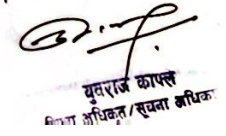 युवराज काफ्ले
अधिकृत/सूचना अधिक